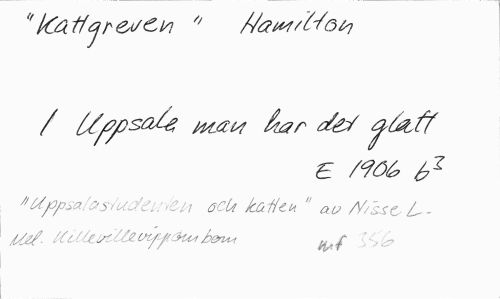 "Kattgreven" Hamilton
I Uppsala man har det glatt
E 1906 b3
"Uppsalastudenten och katten" av Nisse L.
Mel. Killevillevippombom
mf 356